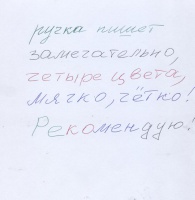 ручка пишет
замечательно,
четыре цвета,
мячко, чётко!
Рекомендую!